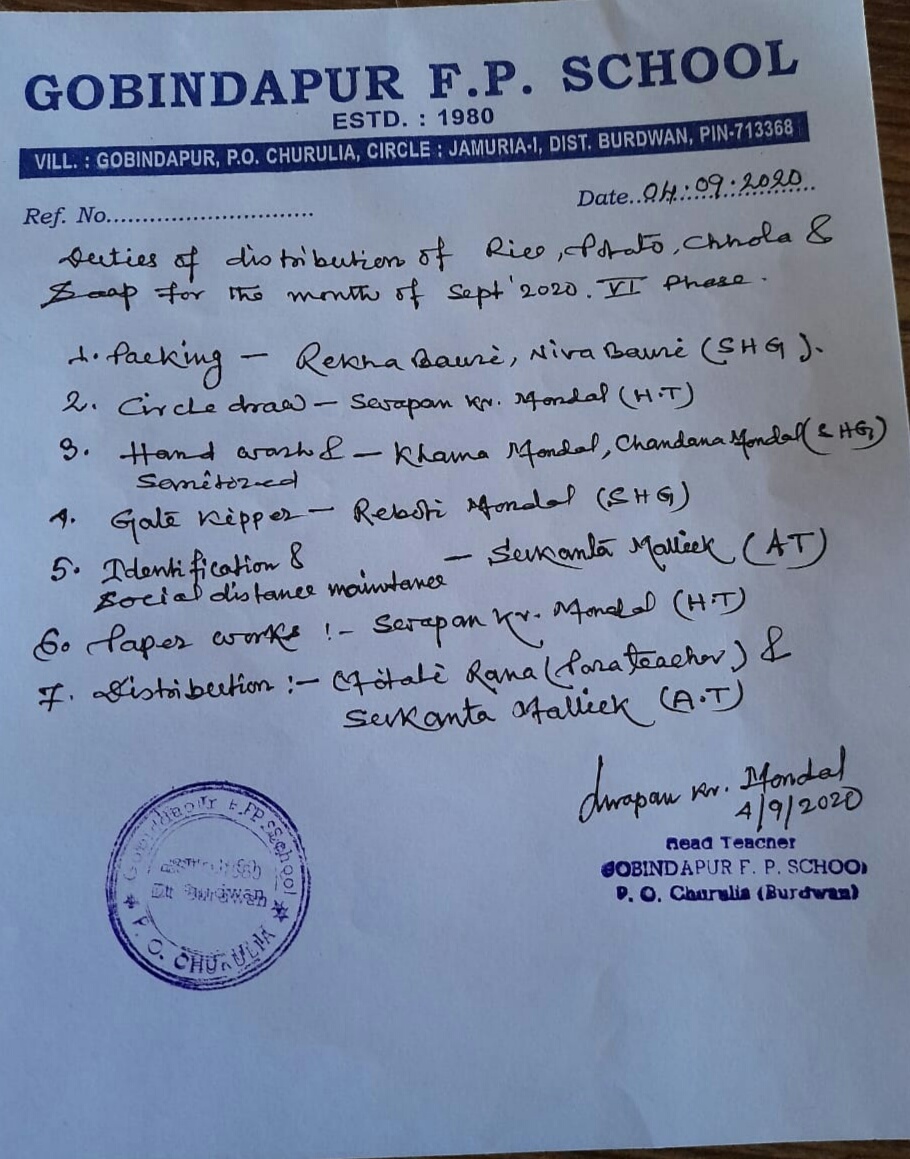 GOBINDAPUR F.P. SCHOOL
ESTD. : 1980
VILL. : GOBINDAPUR, P.O. CHURULIA, CIRCLE : JAMURIA-I, DIST. BURDWAN, PIN-713368
Ref. No.............................
Date..04:09.2020..
Duties of distribution of Rice, Potato, Chhola &
Soap for the month of Sept' 2020. VI Phase.
1. Packing — Rekha Bauri, Niva Bauri (SHG).
2. Circle draw — Swapan Kr. Mondal (H.T)
3. Hand wash & — Khama Mondal, Chandana Mondal (SHG)
Senitozed
4. Gate Kipper — Reboti Mondal (SHG)
5. Identification & — Sukanta Mallick (AT)
Social distance maintance
6. Paper works :- Swapan Kr. Mondal (H.T)
7. Distribution :- Mitali Rana (Para teacher) &
Sukanta Mallick (A.T)
Swapan Kr. Mondal
4/9/2020
Head Teacher
GOBINDAPUR F. P. SCHOOL
P. O. Churulia (Burdwan)
Gobindapur F.P. School
Burdwan
P. O. CHURULIA